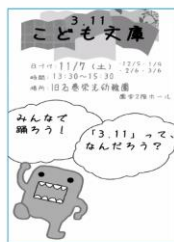 3.11
こども文庫
日づけ:11/7 (土) ・12/5・1/9
・2/6・3/6
時間:13:30~15:30
場所:旧石巻栄光幼稚園
園舎2階ホール
みんなで
踊ろう!
「3.11」って、
なんだろう?